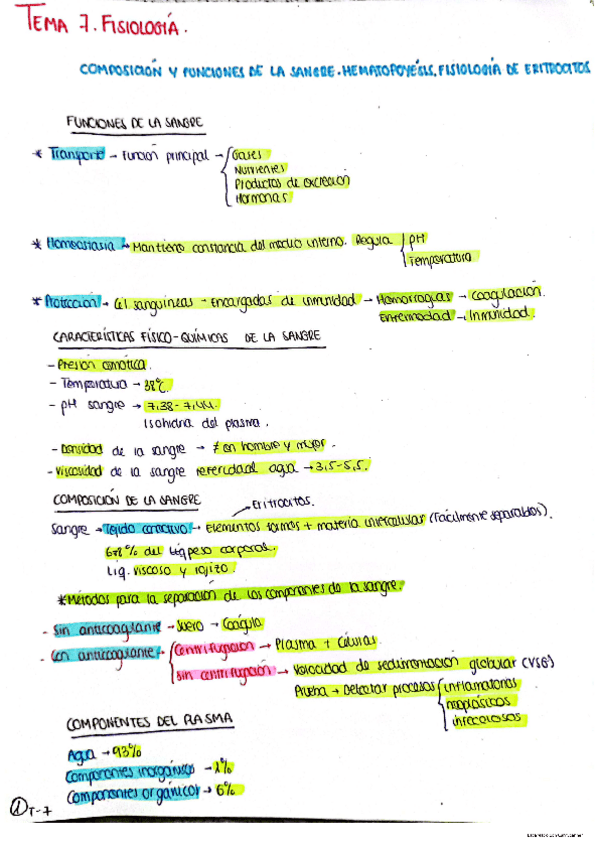 TEMA 7. FISIOLOGÍA.
COMPOSICIÓN Y FUNCIONES DE LA SANGRE. HEMATOPOYESIS. FISIOLOGÍA DE ERITROCITOS
FUNCIONES DE LA SANGRE
* Transporte → Función principal → Gases
Nutrientes
Productos de excreción
Hormonas
* Homeostasia → Mantiene constancia del medio interno. Regula pH
Temperatura
* Protección → Cel sanguíneas → Encargadas de inmunidad → Hemorragias → Coagulación.
Enfermedad → Inmunidad.
CARACTERÍSTICAS FÍSICO-QUÍMICAS DE LA SANGRE
- Presión osmótica.
- Temperatura → 38°C.
- pH sangre → 7,38-7,44.
Isohidria del plasma.
- Densidad de la sangre → ≠ en hombre y mujer.
- Viscosidad de la sangre referida al agua → 3,5-5,5.
COMPOSICIÓN DE LA SANGRE
Eritrocitos.
Sangre → Tejido conectivo → Elementos formes + materia intercelular (Fácilmente separables).
del peso corporal.
Líq. viscoso y rojizo.
* Métodos para la separación de los componentes de la sangre.
- Sin anticoagulante → Suero → Coágulo
- Con anticoagulante → Centrifugación → Plasma + células.
Sin centrifugación → Velocidad de sedimentación globular (VSG)
Prueba → Detectar procesos inflamatorios
neoplásicos
infecciosos
COMPONENTES DEL PLASMA
Agua → 93%
Componentes inorgánicos → 1%
Componentes orgánicos → 6%
1 T-7